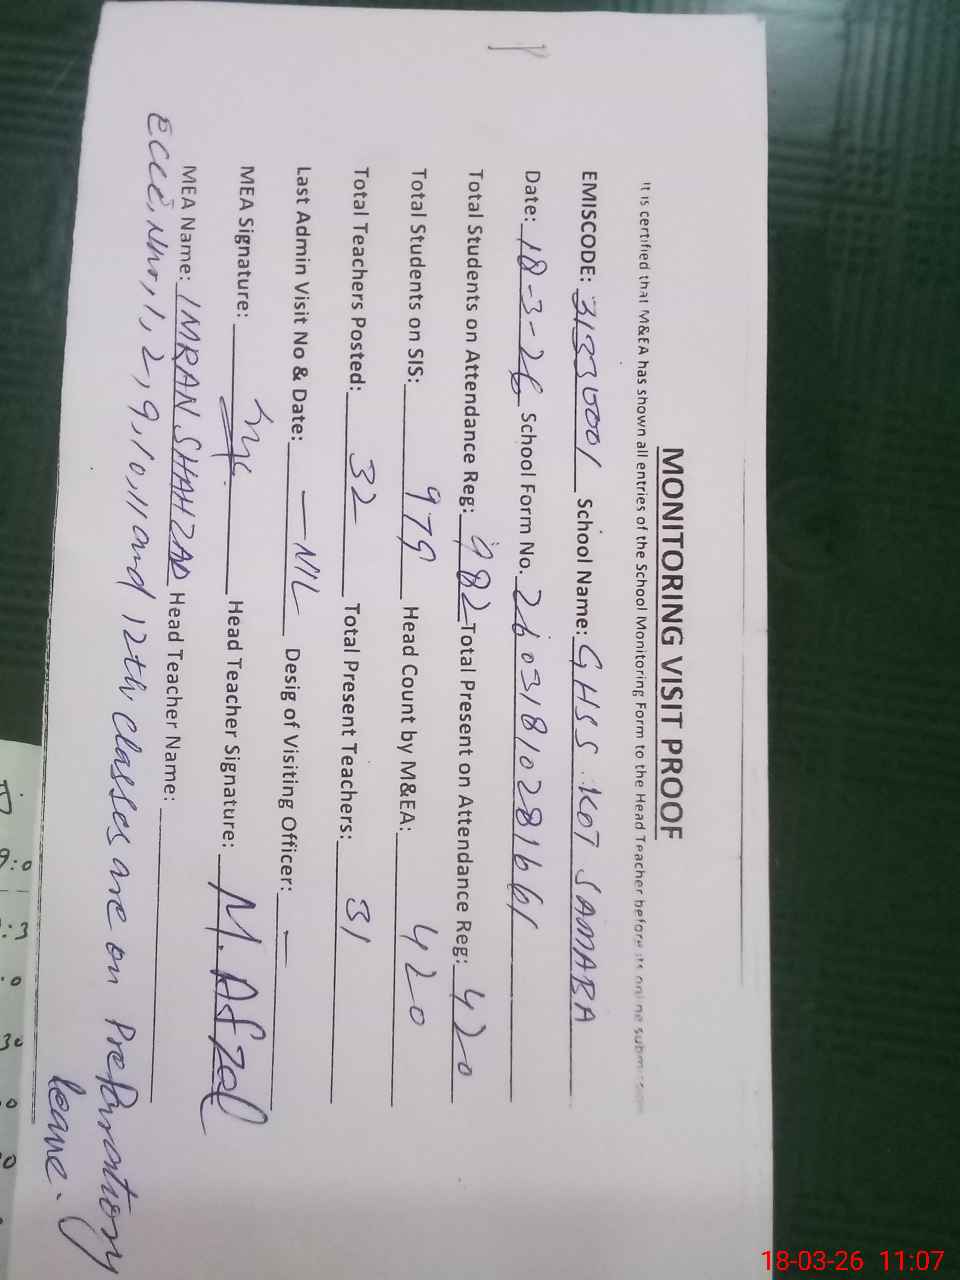 MONITORING VISIT PROOF
It is certified that M&EA has shown all entries of the School Monitoring Form to the Head Teacher before its online submission
EMISCODE: 31330001 School Name: GHSS KOT SAMABA
Date: 18-3-26 School Form No. 26031810281661
Total Students on Attendance Reg: 982 Total Present on Attendance Reg: 420
Total Students on SIS: 979 Head Count by M&EA: 420
Total Teachers Posted: 32 Total Present Teachers: 31
Last Admin Visit No & Date: — NIL Desig of Visiting Officer: —
MEA Signature: Head Teacher Signature: M. Afzal
MEA Name: IMRAN SHAHZAD Head Teacher Name:
ECCE, 1, 2, 9, 10, 11 and 12th classes are on Preparation
leave.
9:0
:3
0
30
0
0
18-03-26 11:07